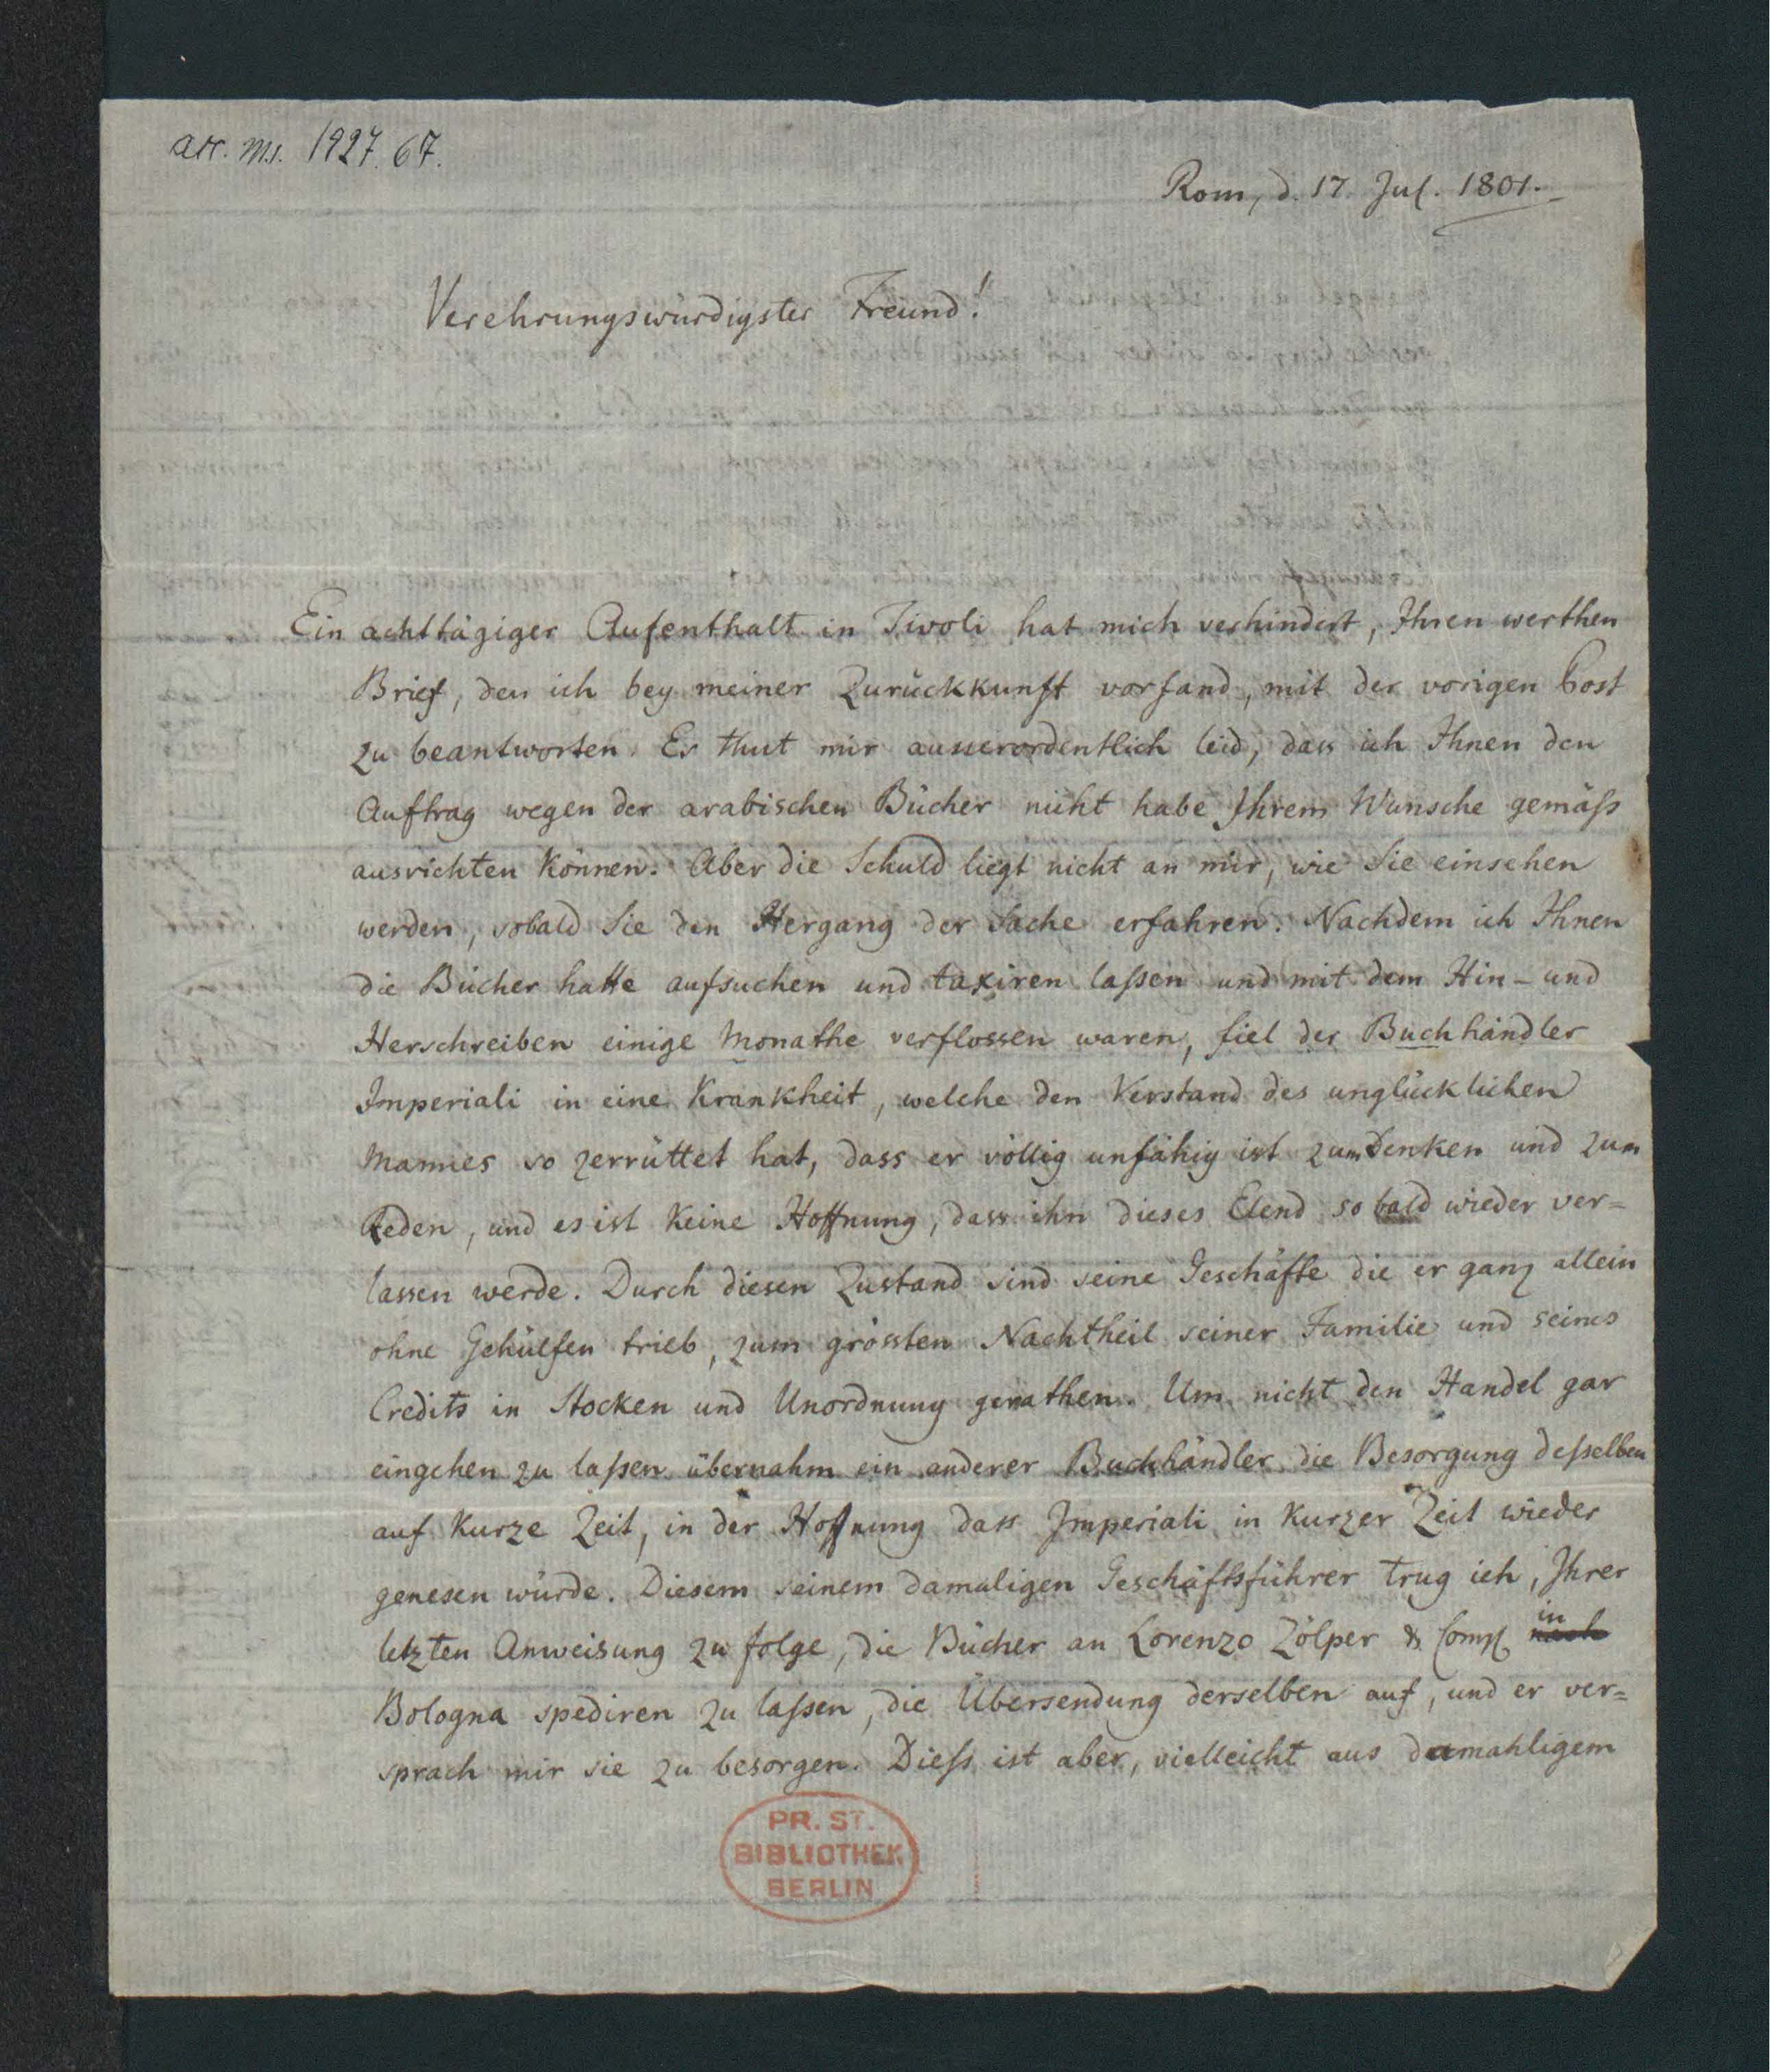 acc. Ms. 1927. 67.
Rom, d. 17 Jul. 1801.
Verehrungswürdigster Freund!
Ein achttägiger Aufenthalt in Tivoli hat mich verhindert, Ihren werthen
Brief, den ich bey meiner Zurückkunft vorfand, mit der vorigen Post
zu beantworten. Es thut mir ausserordentlich leid, dass ich Ihnen den
Auftrag wegen der arabischen Bücher nicht habe Ihrem Wunsche gemäß
ausrichten können. Aber die Schuld liegt nicht an mir, wie Sie einsehen
werden, sobald Sie den Hergang der Sache erfahren. Nachdem ich Ihnen
die Bücher hatte aufsuchen und taxiren laßen und mit dem Hin- und
Herschreiben einige Monathe verflossen waren, fiel der Buchhändler
Imperiali in eine Krankheit, welche den Verstand des unglücklichen
Mannes so zerrüttet hat, dass er völlig unfähig ist zum Denken und zum
Reden, und es ist keine Hoffnung, dass ihn dieses Elend so bald wieder ver=
lassen werde. Durch diesen Zustand sind seine Geschäfte die er ganz allein
ohne Gehülfen trieb, zum grössten Nachtheil seiner Familie und seines
Credits in Stocken und Unordnung gerathen. Um nicht den Handel gar
eingehen zu laßen übernahm ein anderer Buchhändler die Besorgung deßelben
auf kurze Zeit, in der Hoffnung dass Imperiali in kurzer Zeit wieder
genesen würde. Diesem seinem damaligen Geschäftsführer trug ich, Ihrer
letzten Anweisung zu folge, die Bücher an Lorenzo Zölper & Comp. nach in
Bologna spediren zu laßen, die Übersendung derselben auf, und er ver=
sprach mir sie zu besorgen. Dieß ist aber, vielleicht aus damahligem
PR. ST.
BIBLIOTHEK
BERLIN